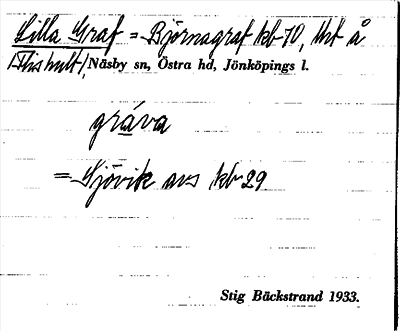 Lilla Graf = Björnagraf kb-70, tht å
/Thishult/, Näsby sn, Östra hd, Jönköpings l.
gráva
= Sjövik avs kb-29
Stig Bäckstrand 1933.